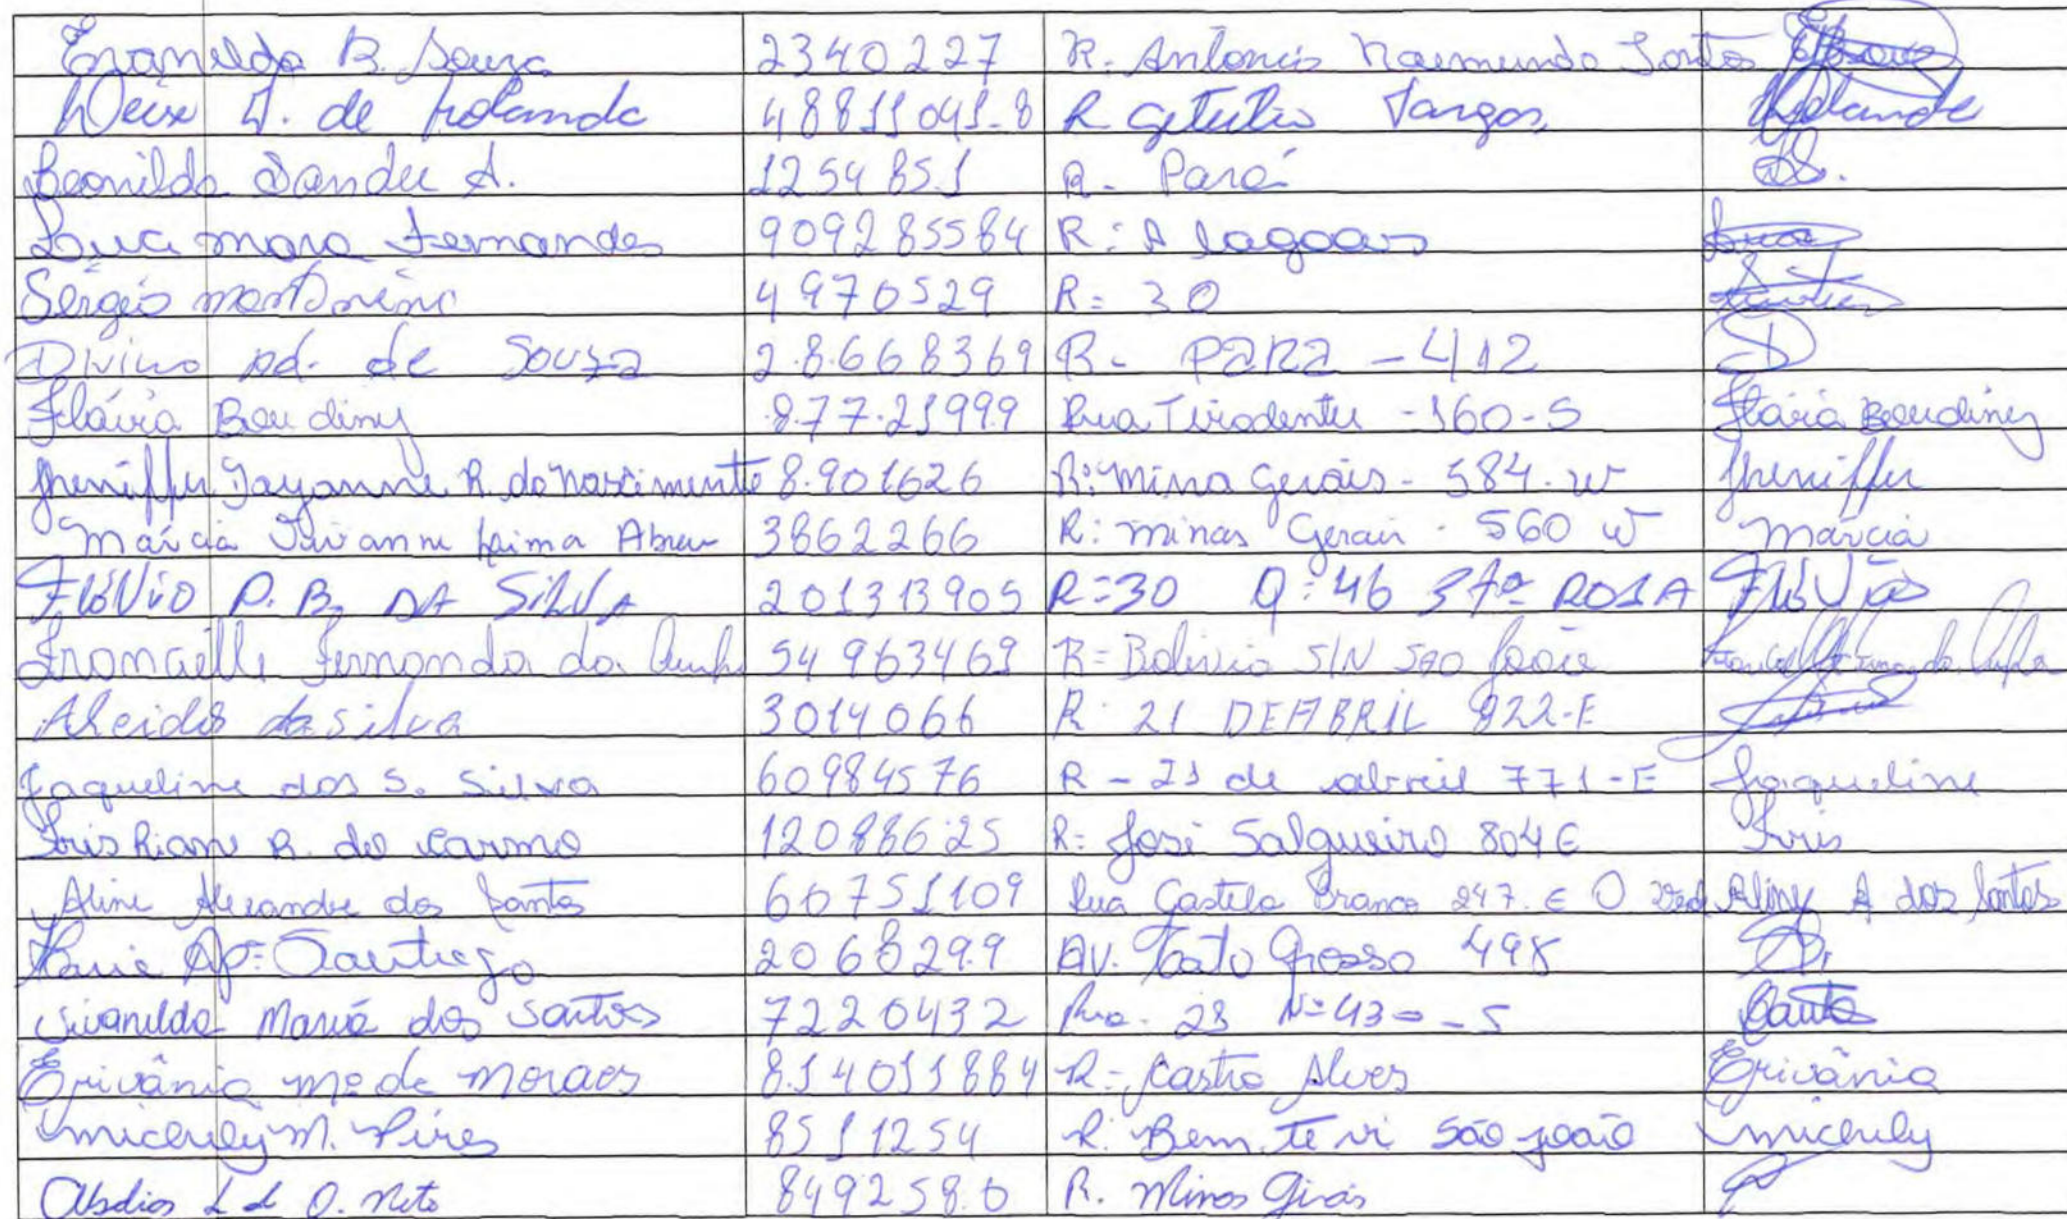 Eranilda B. Souza 2340227 R. Antonio Raimundo Santos
Deise D. de Holanda 48811041-8 R Getulio Vargas Holanda
Leonilda Sander A. 1254851 R - Pará
Luci mara Fernandes 909285584 R: A lagoas Luci
Sérgio 4970529 R= 30
Divino Ad. de Souza 2.8.668369 R - PARA - 412 D
Flávia Beudiny 8.77.21999 Rua Tiradentes - 160-S Flávia Beudiny
Jheniffer Tayanne R. do nascimento 8.901626 R: mina gerais - 584. w Jheniffer
Márcia Vivianne Lima Abreu 3862266 R: minas Gerais - 560 w Márcia
FLÁViO P. B. DA SiLVA 201313905 R=30 Q:46 STª ROSA
Francielle Fernanda da Cunha 549963469 R= Bolivia S/N São João Francielle Fernanda Cunha
Alcides da silva 3014066 R. 21 DE ABRIL 922-E
Jaqueline dos S. Silva 60984576 R - 21 de abril 771-E Jaqueline
Iris Riane R. do carmo 12088625 R= José Salgueiro 804 E Iris
Aline Alexandre dos Santos 60751109 Rua Castelo Branco 247. E Aliny A dos Santos
Apª Santiago 2068299 AV. Mato Grosso 498
Sivanilda Maria dos Santos 7220432 Rua - 28 Nº 430 - S Santos
Erivânia Mª de Moraes 814011884 R - Castro Alves Erivânia
micheily M. Pires 8511254 R. Bem. te vi São joão micheily
Abdias L d O. Neto 849258.0 R. Minas Girais